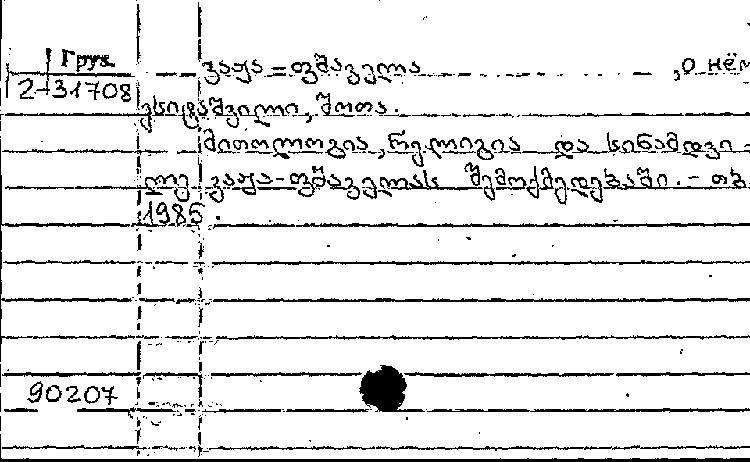 Груз
2-31708
ვაჟა=ფშაველა ,о нём
ქსიტაშვილი, შოთა.
მითოლოგია, რელიგია და სინამდვი-
ლე ვაჟა-ფშაველას შემოქმედებაში. - თბ.
1985.
90207